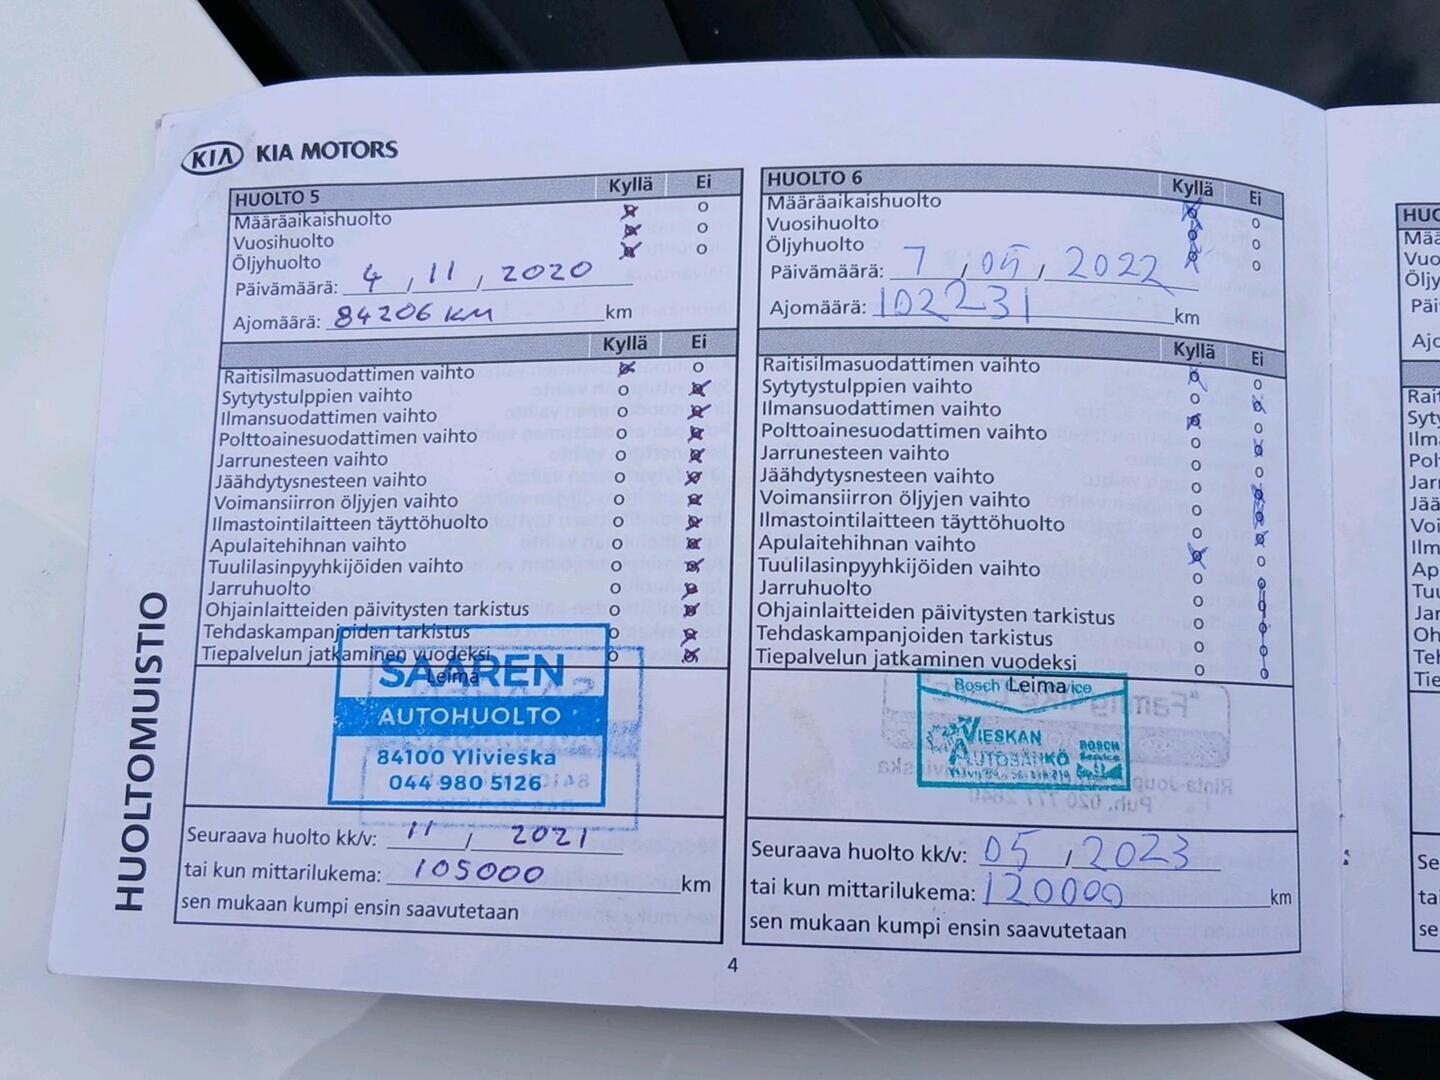 KIA KIA MOTORS
HUOLTO 5 Kyllä Ei
Määräaikaishuolto o o
Vuosihuolto o o
Öljyhuolto o
Päivämäärä: 4, 11, 2020
Ajomäärä: 84206 KM km
Kyllä Ei
Raitisilmasuodattimen vaihto o o
Sytytystulppien vaihto o o
Ilmansuodattimen vaihto o o
Polttoainesuodattimen vaihto o o
Jarrunesteen vaihto o o
Jäähdytysnesteen vaihto o o
Voimansiirron öljyjen vaihto o o
Ilmastointilaitteen täyttöhuolto o o
Apulaitehihnan vaihto o o
Tuulilasinpyyhkijöiden vaihto o o
Jarruhuolto o o
Ohjainlaitteiden päivitysten tarkistus o o
Tehdaskampanjoiden tarkistus o o
Tiepalvelun jatkaminen vuodeksi o o
Leima
SAAREN
AUTOHUOLTO
84100 Ylivieska
044 980 5126
Seuraava huolto kk/v: 11 / 2021
tai kun mittarilukema: 105000 km
sen mukaan kumpi ensin saavutetaan
HUOLTO 6 Kyllä Ei
Määräaikaishuolto o o
Vuosihuolto o o
Öljyhuolto o o
Päivämäärä: 7 / 05, 2022
Ajomäärä: 102231 km
Kyllä Ei
Raitisilmasuodattimen vaihto o o
Sytytystulppien vaihto o o
Ilmansuodattimen vaihto o o
Polttoainesuodattimen vaihto o o
Jarrunesteen vaihto o o
Jäähdytysnesteen vaihto o o
Voimansiirron öljyjen vaihto o o
Ilmastointilaitteen täyttöhuolto o o
Apulaitehihnan vaihto o o
Tuulilasinpyyhkijöiden vaihto o o
Jarruhuolto o o
Ohjainlaitteiden päivitysten tarkistus o o
Tehdaskampanjoiden tarkistus o o
Tiepalvelun jatkaminen vuodeksi o o
Bosch Leima
VIESKAN
AUTOSÄHKÖ
BOSCH
Service
Seuraava huolto kk/v: 05 / 2023
tai kun mittarilukema: 120000 km
sen mukaan kumpi ensin saavutetaan
HUOLTOMUISTIO
4